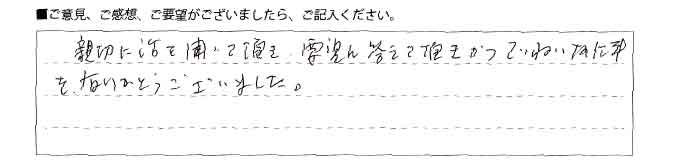 ■ご意見、ご感想、ご要望がございましたら、ご記入ください。
親切に話を聞いて頂き、要望に答えて頂きかつていねいな仕事
をありがとうございました。